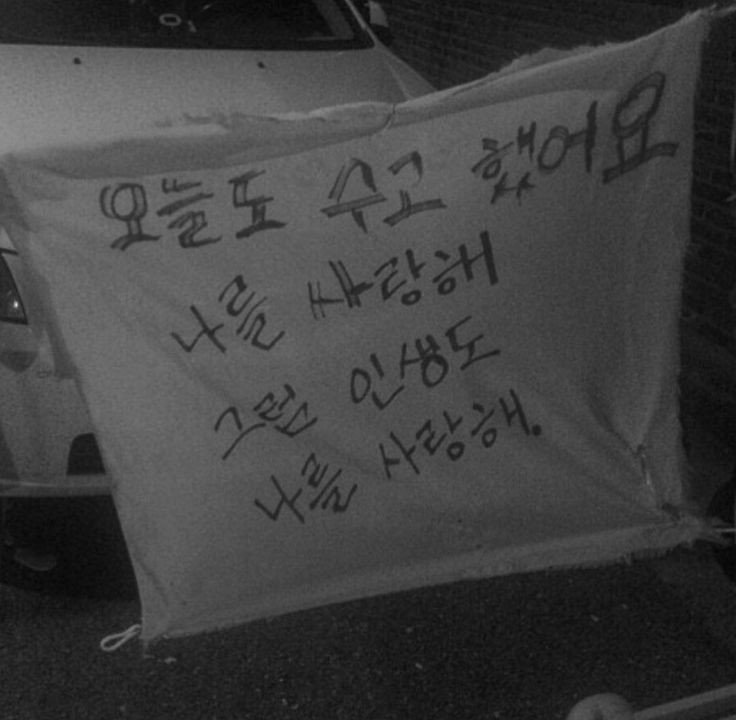 오늘도 수고 했어요
나를 싸랑해
그럼 인생도
나를 사랑해.